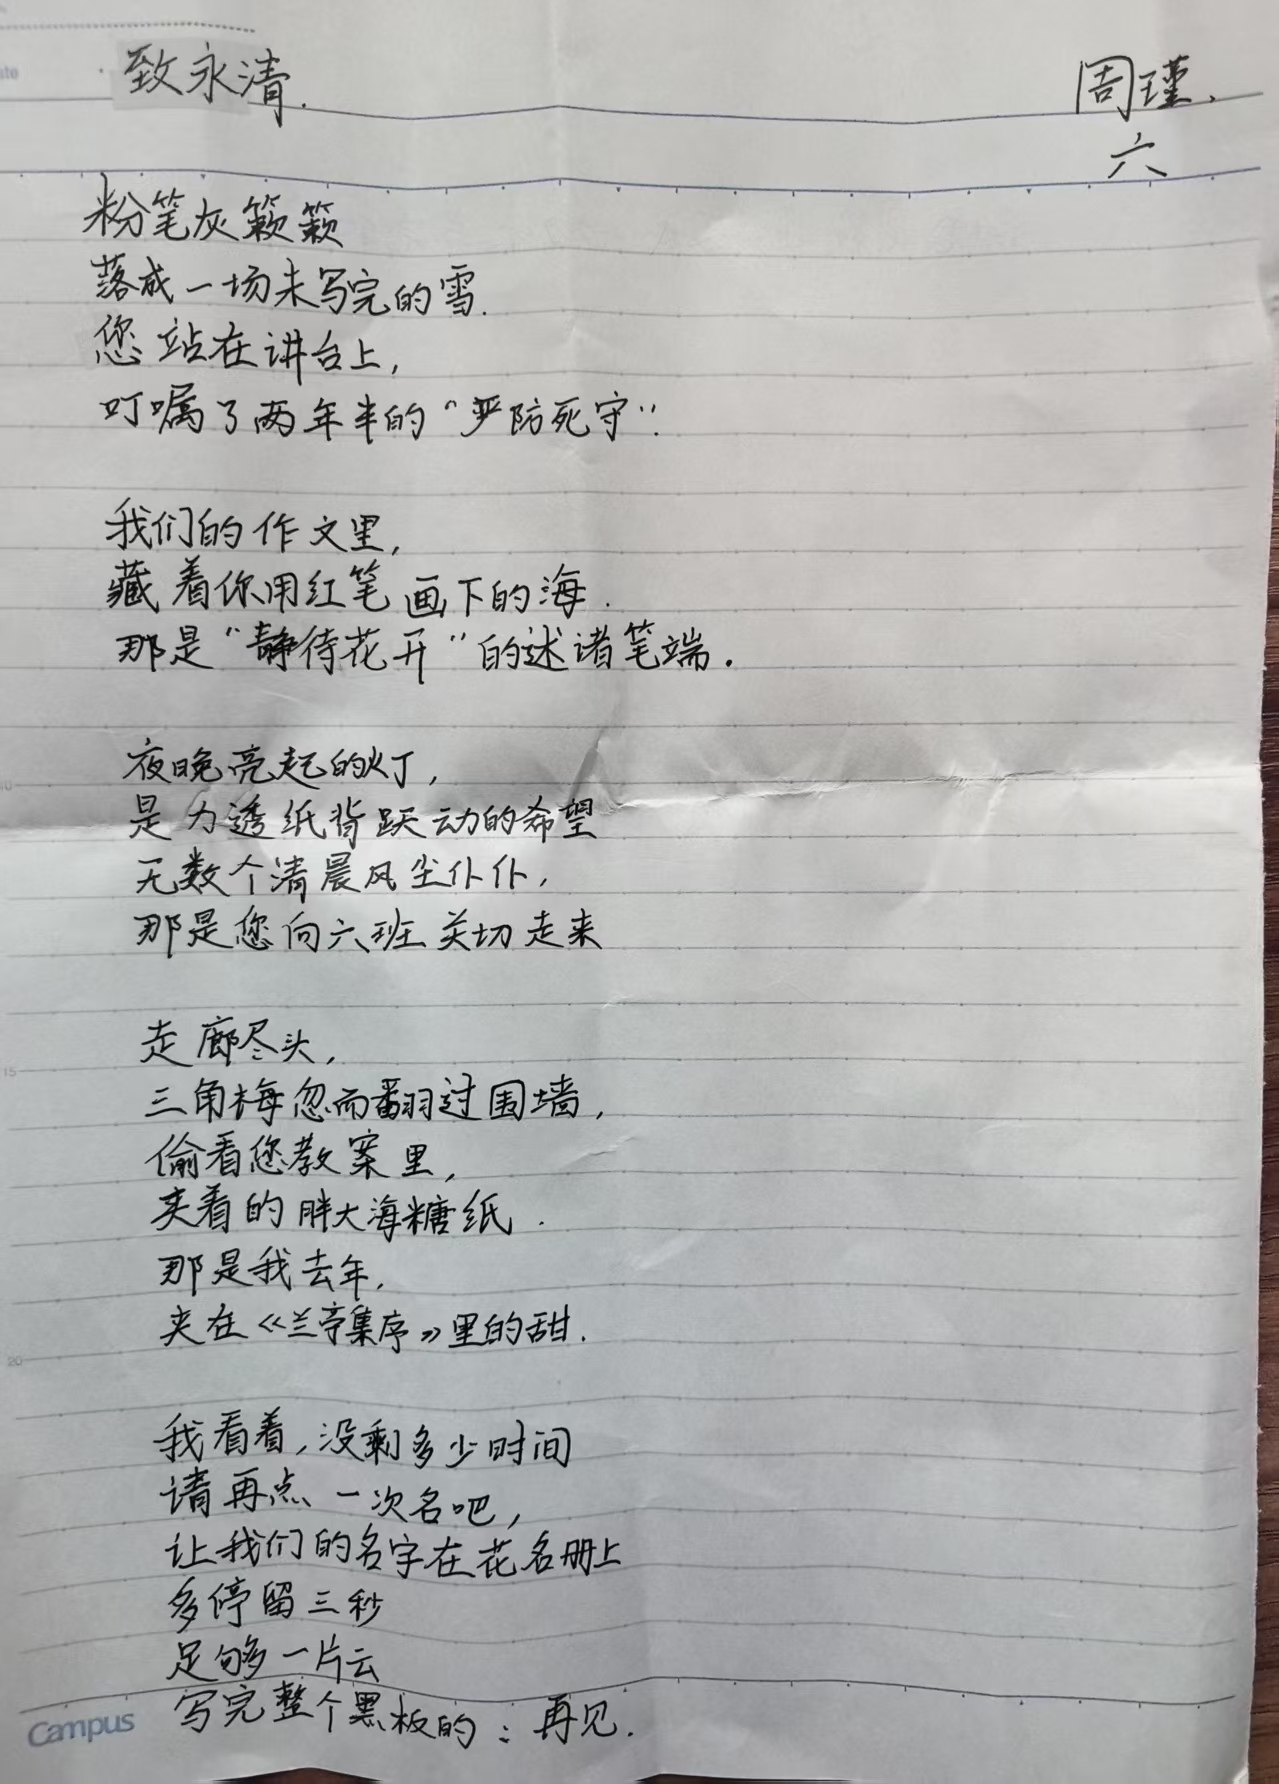 致永清.
周瑾.
六
粉笔灰簌簌
落成一场未写完的雪.
您站在讲台上,
叮嘱了两年半的“严防死守”.
我们的作文里,
藏着你用红笔画下的海.
那是“静待花开”的述诸笔端.
夜晚亮起的灯,
是力透纸背跃动的希望
无数个清晨风尘仆仆,
那是您向六班关切走来
走廊尽头,
三角梅忽而翻过围墙,
偷看您教案里,
夹着的胖大海糖纸.
那是我去年,
夹在《兰亭集序》里的甜.
我看着,没剩多少时间
请再点一次名吧,
让我们的名字在花名册上
多停留三秒
足够多一片云
写完整个黑板的:再见.
Campus